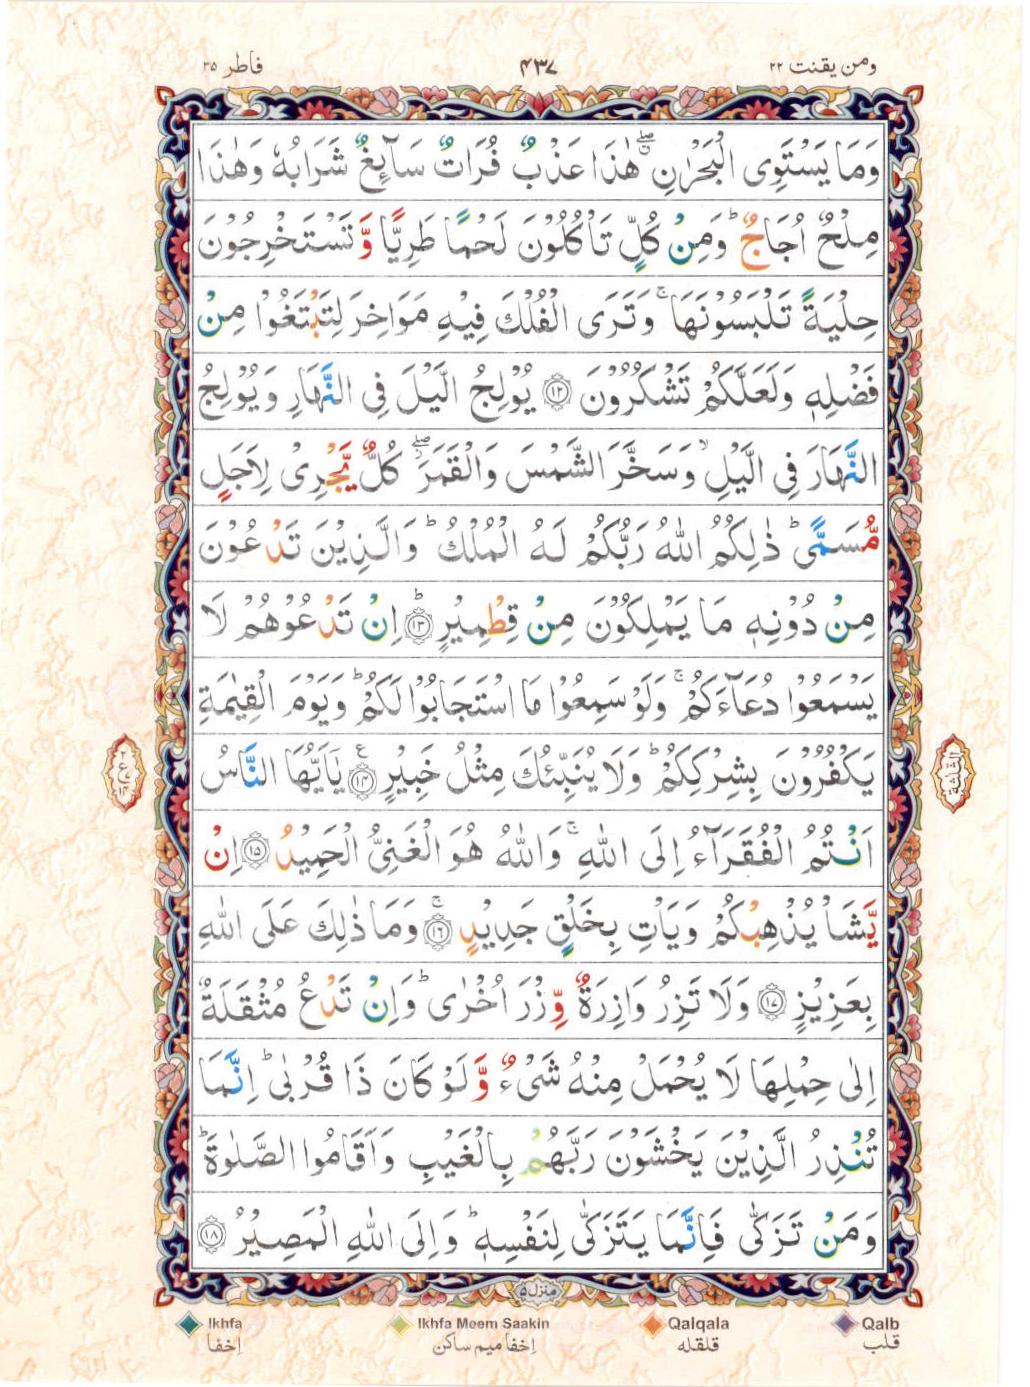 ومن يقنت ٢٢
٤٣٧
فاطر ٣٥
وَمَا يَسْتَوِى الْبَحْرٰنِ ۖ هٰذَا عَذْبٌ فُرَاتٌ سَآئِغٌ شَرَابُهٗ وَهٰذَا
مِلْحٌ اُجَاجٌ ؕ وَمِنْ كُلٍّ تَاْكُلُوْنَ لَحْمًا طَرِيًّا وَّتَسْتَخْرِجُوْنَ
حِلْيَةً تَلْبَسُوْنَهَا ۚ وَتَرَى الْفُلْكَ فِيْهِ مَوَاخِرَ لِتَبْتَغُوْا مِنْ
فَضْلِهٖ وَلَعَلَّكُمْ تَشْكُرُوْنَ ﴿١٢﴾ يُوْلِجُ الَّيْلَ فِى النَّهَارِ وَيُوْلِجُ
النَّهَارَ فِى الَّيْلِ ۙ وَسَخَّرَ الشَّمْسَ وَالْقَمَرَ ۖ كُلٌّ يَّجْرِىْ لِاَجَلٍ
مُّسَمًّى ؕ ذٰلِكُمُ اللّٰهُ رَبُّكُمْ لَهُ الْمُلْكُ ؕ وَالَّذِيْنَ تَدْعُوْنَ
مِنْ دُوْنِهٖ مَا يَمْلِكُوْنَ مِنْ قِطْمِيْرٍ ؕ ﴿١٣﴾ اِنْ تَدْعُوْهُمْ لَا
يَسْمَعُوْا دُعَآءَكُمْ ۚ وَلَوْ سَمِعُوْا مَا اسْتَجَابُوْا لَكُمْ ؕ وَيَوْمَ الْقِيٰمَةِ
يَكْفُرُوْنَ بِشِرْكِكُمْ ؕ وَلَا يُنَبِّئُكَ مِثْلُ خَبِيْرٍ ﴿١٤﴾ ع يٰۤاَيُّهَا النَّاسُ
اَنْتُمُ الْفُقَرَآءُ اِلَى اللّٰهِ ۚ وَاللّٰهُ هُوَ الْغَنِىُّ الْحَمِيْدُ ﴿١٥﴾ اِنْ
يَّشَاْ يُذْهِبْكُمْ وَيَاْتِ بِخَلْقٍ جَدِيْدٍ ۚ ﴿١٦﴾ وَمَا ذٰلِكَ عَلَى اللّٰهِ
بِعَزِيْزٍ ﴿١٧﴾ وَلَا تَزِرُ وَازِرَةٌ وِّزْرَ اُخْرٰى ؕ وَاِنْ تَدْعُ مُثْقَلَةٌ
اِلٰى حِمْلِهَا لَا يُحْمَلْ مِنْهُ شَىْءٌ وَّلَوْ كَانَ ذَا قُرْبٰى ؕ اِنَّمَا
تُنْذِرُ الَّذِيْنَ يَخْشَوْنَ رَبَّهُمْ بِالْغَيْبِ وَاَقَامُوا الصَّلٰوةَ ؕ
وَمَنْ تَزَكّٰى فَاِنَّمَا يَتَزَكّٰى لِنَفْسِهٖ ؕ وَاِلَى اللّٰهِ الْمَصِيْرُ ﴿١٨﴾
الثلثة
منزل ٥
Ikhfa
اخفا
Ikhfa Meem Saakin
اخفا ميم ساكن
Qalqala
قلقله
Qalb
قلب